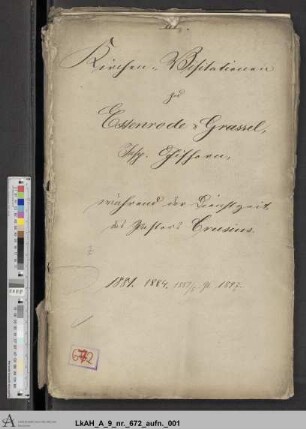 Kirchen-Visitationen
zu
Essenrode-Grassel,
während der Dienstzeit
des Pastors Crusius.
1881. 1884.
672
LkAH_A_9_nr._672_aufn._001